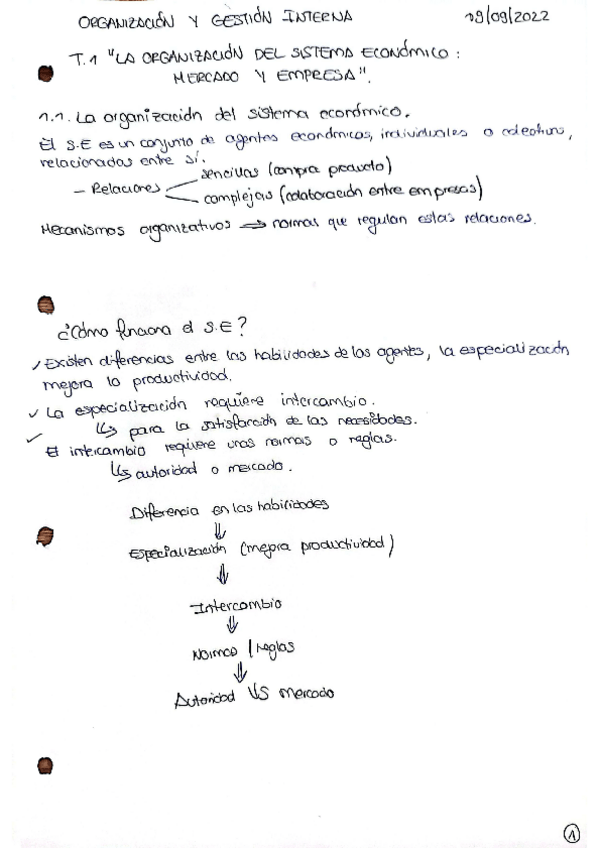 ORGANIZACIÓN Y GESTIÓN INTERNA 19/09/2022
T.1 "LA ORGANIZACIÓN DEL SISTEMA ECONÓMICO:
MERCADO Y EMPRESA".
1.1. La organización del sistema económico.
El S.E es un conjunto de agentes económicos, individuales o colectivos,
relacionados entre sí.
sencillas (compra producto)
- Relaciones
complejas (colaboración entre empresas)
Mecanismos organizativos → normas que regulan estas relaciones.
¿Cómo funciona el S.E?
✓ Existen diferencias entre las habilidades de los agentes, la especialización
mejora la productividad.
✓ La especialización requiere intercambio.
↳ para la satisfacción de las necesidades.
✓ El intercambio requiere unas normas o reglas.
↳ autoridad o mercado.
Diferencia en las habilidades
⇓
Especialización (mejora productividad)
⇓
Intercambio
⇓
Normas / reglas
⇓
Autoridad VS mercado
1